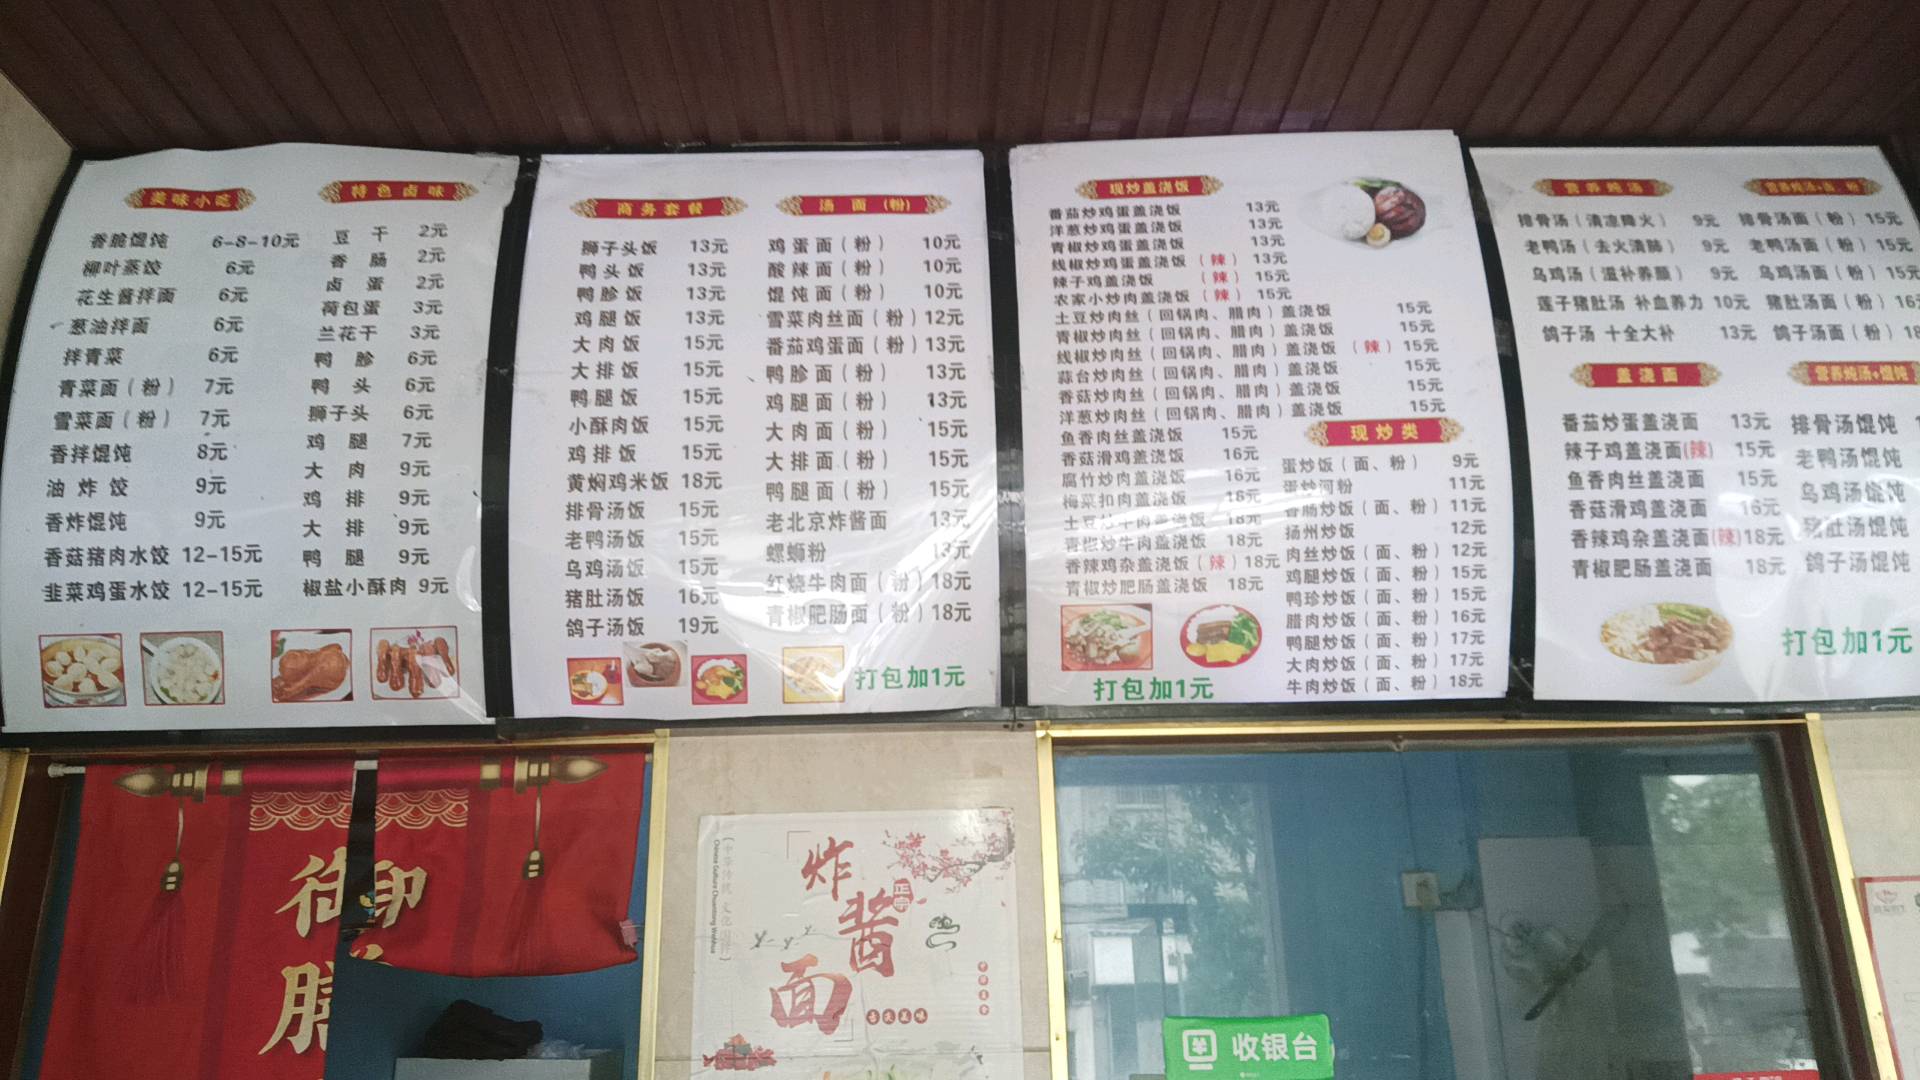 美味小吃
香脆馄饨 6-8-10元
柳叶蒸饺 6元
花生酱拌面 6元
葱油拌面 6元
拌青菜 6元
青菜面(粉) 7元
雪菜面(粉) 7元
香拌馄饨 8元
油炸饺 9元
香炸馄饨 9元
香菇猪肉水饺 12-15元
韭菜鸡蛋水饺 12-15元
特色卤味
豆干 2元
香肠 2元
卤蛋 2元
荷包蛋 3元
兰花干 3元
鸭胗 6元
鸭头 6元
狮子头 6元
鸡腿 7元
大肉 9元
鸡排 9元
大排 9元
鸭腿 9元
椒盐小酥肉 9元
商务套餐
狮子头饭 13元
鸭头饭 13元
鸭胗饭 13元
鸡腿饭 13元
大肉饭 15元
大排饭 15元
鸭腿饭 15元
小酥肉饭 15元
鸡排饭 15元
黄焖鸡米饭 18元
排骨汤饭 15元
老鸭汤饭 15元
乌鸡汤饭 15元
猪肚汤饭 16元
鸽子汤饭 19元
汤面(粉)
鸡蛋面(粉) 10元
酸辣面(粉) 10元
馄饨面(粉) 10元
雪菜肉丝面(粉) 12元
番茄鸡蛋面(粉) 13元
鸭胗面(粉) 13元
鸡腿面(粉) 13元
大肉面(粉) 15元
大排面(粉) 15元
鸭腿面(粉) 15元
老北京炸酱面 13元
螺蛳粉 13元
红烧牛肉面(粉) 18元
青椒肥肠面(粉) 18元
打包加1元
现炒盖浇饭
番茄炒鸡蛋盖浇饭 13元
洋葱炒鸡蛋盖浇饭 13元
青椒炒鸡蛋盖浇饭 13元
线椒炒鸡蛋盖浇饭(辣) 13元
辣子鸡盖浇饭(辣) 15元
农家小炒肉盖浇饭(辣) 15元
土豆炒肉丝(回锅肉、腊肉)盖浇饭 15元
青椒炒肉丝(回锅肉、腊肉)盖浇饭 15元
线椒炒肉丝(回锅肉、腊肉)盖浇饭(辣) 15元
蒜台炒肉丝(回锅肉、腊肉)盖浇饭 15元
香菇炒肉丝(回锅肉、腊肉)盖浇饭 15元
洋葱炒肉丝(回锅肉、腊肉)盖浇饭 15元
鱼香肉丝盖浇饭 15元
香菇滑鸡盖浇饭 16元
腐竹炒肉盖浇饭 16元
梅菜扣肉盖浇饭 16元
土豆炒牛肉盖浇饭 18元
青椒炒牛肉盖浇饭 18元
香辣鸡杂盖浇饭(辣) 18元
青椒炒肥肠盖浇饭 18元
打包加1元
现炒类
蛋炒饭(面、粉) 9元
蛋炒河粉 11元
香肠炒饭(面、粉) 11元
扬州炒饭 12元
肉丝炒饭(面、粉) 12元
鸡腿炒饭(面、粉) 15元
鸭珍炒饭(面、粉) 15元
腊肉炒饭(面、粉) 16元
鸭腿炒饭(面、粉) 17元
大肉炒饭(面、粉) 17元
牛肉炒饭(面、粉) 18元
营养炖汤
排骨汤(清凉降火) 9元
老鸭汤(去火清肺) 9元
乌鸡汤(滋补养颜) 9元
莲子猪肚汤 补血养力 10元
鸽子汤 十全大补 13元
营养炖汤+面、粉
排骨汤面(粉) 15元
老鸭汤面(粉) 15元
乌鸡汤面(粉) 15元
猪肚汤面(粉) 16
鸽子汤面(粉) 18
盖浇面
番茄炒蛋盖浇面 13元
辣子鸡盖浇面(辣) 15元
鱼香肉丝盖浇面 15元
香菇滑鸡盖浇面 16元
香辣鸡杂盖浇面(辣) 18元
青椒肥肠盖浇面 18元
营养炖汤+馄饨
排骨汤馄饨
老鸭汤馄饨
乌鸡汤馄饨
猪肚汤馄饨
鸽子汤馄饨
打包加1元
御
膳
炸
酱
面
正宗
舌尖美味
收银台